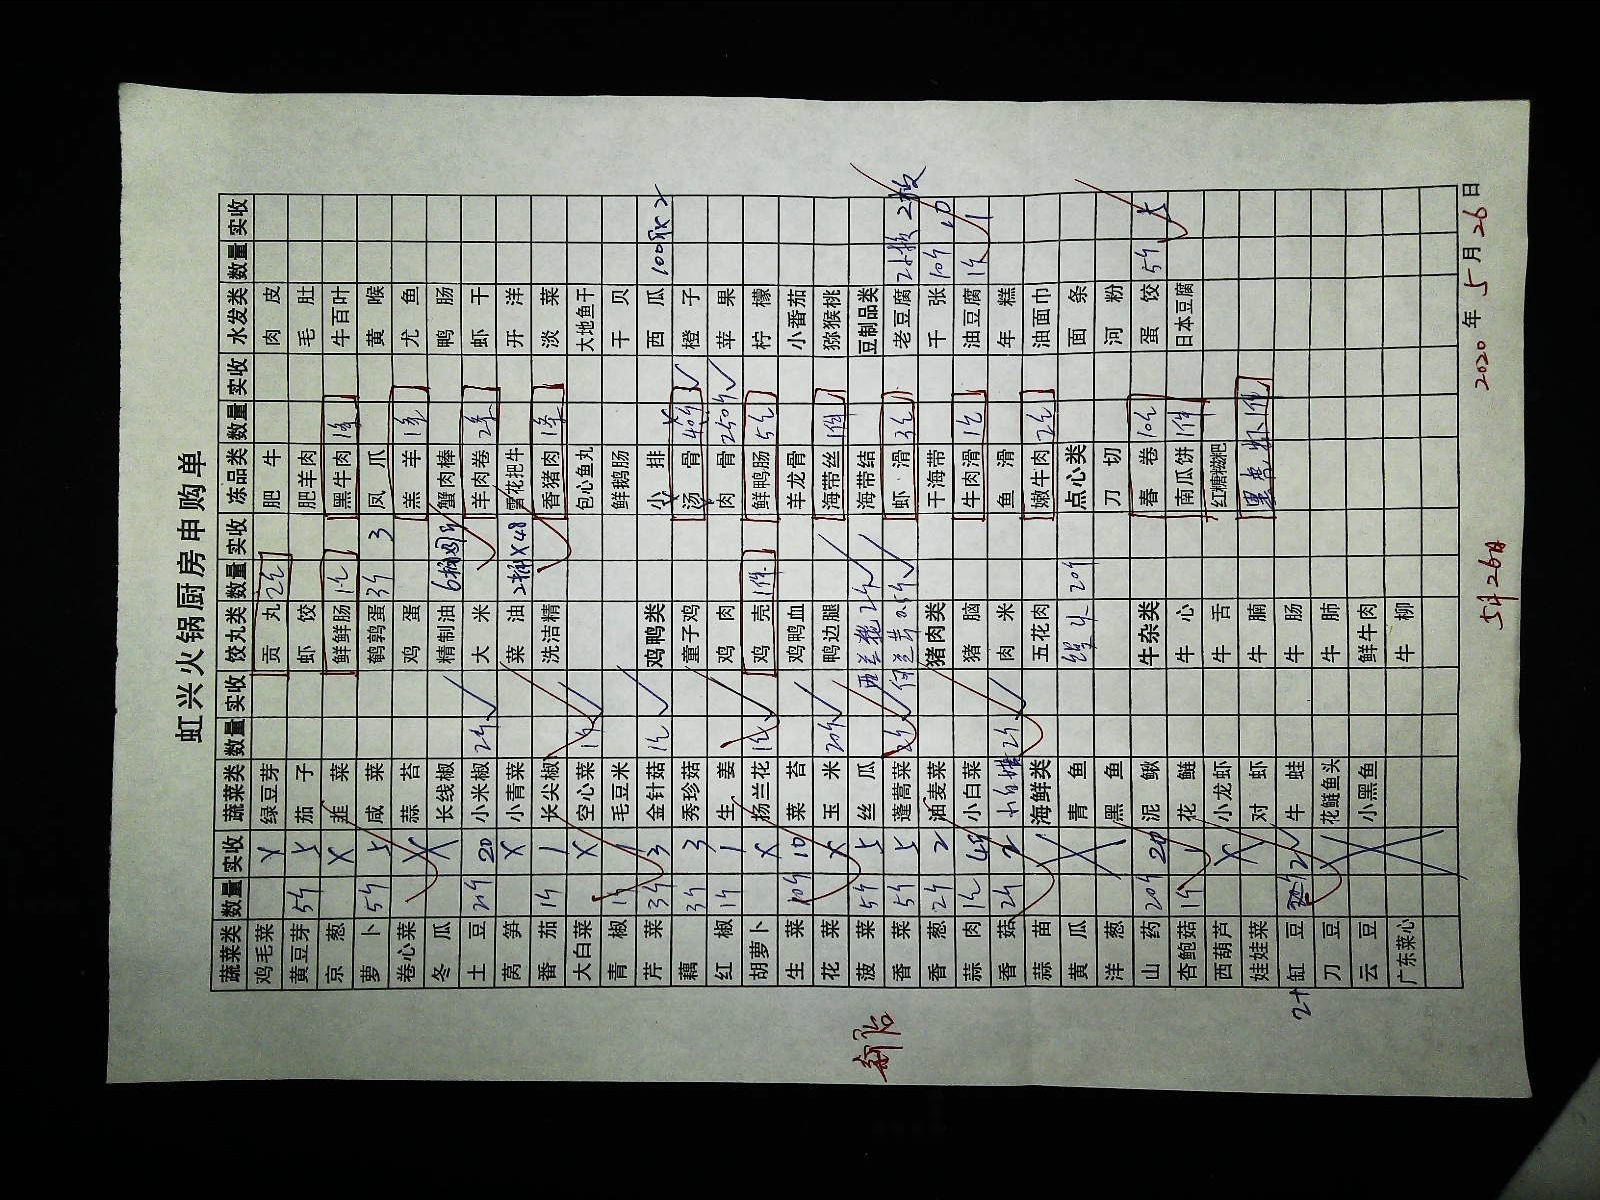 虹兴火锅厨房申购单
蔬菜类 数量 实收 蔬菜类 数量 实收 饺丸类 数量 实收 冻品类 数量 实收 水发类 数量 实收
鸡毛菜 x 绿豆芽 贡丸 2包 肥牛 肉皮
黄豆芽 5斤 5 茄子 虾饺 肥羊肉 毛肚
京葱 x 韭菜 鲜鲜肠 1包 黑牛肉 1条 牛百叶
萝卜 5斤 5 咸菜 鹌鹑蛋 3斤 3 凤爪 黄喉
卷心菜 x 蒜苔 鸡蛋 羔羊 1条 尤鱼
冬瓜 长线椒 精制油 6桶 蟹肉棒 鸭肠
土豆 20斤 20 小米椒 2斤 大米 羊肉卷 2条 虾干
莴笋 x 小青菜 菜油 2桶x48 雪花把牛 开洋
番茄 1斤 1 长尖椒 洗洁精 香猪肉 1条 淡菜
大白菜 x 空心菜 1斤 包心鱼丸 大地鱼干
青椒 1斤 1 毛豆米 鲜鹅肠 干贝
芹菜 3斤 3 金针菇 1包 鸡鸭类 小排 西瓜 100斤x2
藕 3斤 3 秀珍菇 童子鸡 汤骨 40斤 橙子
红椒 1斤 1 生姜 鸡肉 肉骨 250斤 苹果
胡萝卜 x 扬兰花 1包 鸡壳 1件 鲜鸭肠 5包 柠檬
生菜 10斤 10 菜苔 鸡鸭血 羊龙骨 小番茄
花菜 x 玉米 20斤 鸭边腿 海带丝 1件 猕猴桃
菠菜 5斤 5 丝瓜 西兰花 2斤 海带结 豆制品类
香菜 5斤 5 蓬蒿菜 2斤 荷兰芹 0.5斤 虾滑 3包 老豆腐 2板 2板
香葱 2斤 2 油麦菜 猪肉类 干海带 千张 10斤 10
蒜肉 1包 小白菜 猪脑 牛肉滑 1包 油豆腐 1斤 1
香菇 2斤 2 2斤 肉米 鱼滑 年糕
蒜苗 海鲜类 五花肉 嫩牛肉 2包 油面巾
黄瓜 青鱼 20斤 点心类 面条
洋葱 黑鱼 刀切 河粉
山药 20斤 20 泥鳅 牛杂类 春卷 10包 蛋饺 5斤 5
杏鲍菇 1斤 1 花鲢 牛心 南瓜饼 1件 日本豆腐
西葫芦 x 小龙虾 牛舌 红糖糍粑
娃娃菜 对虾 牛腩 1件
缸豆 2 牛蛙 牛肠
刀豆 花鲢鱼头 牛肺
云豆 小黑鱼 鲜牛肉
广东菜心 牛柳
5月26日
2020年5月26日